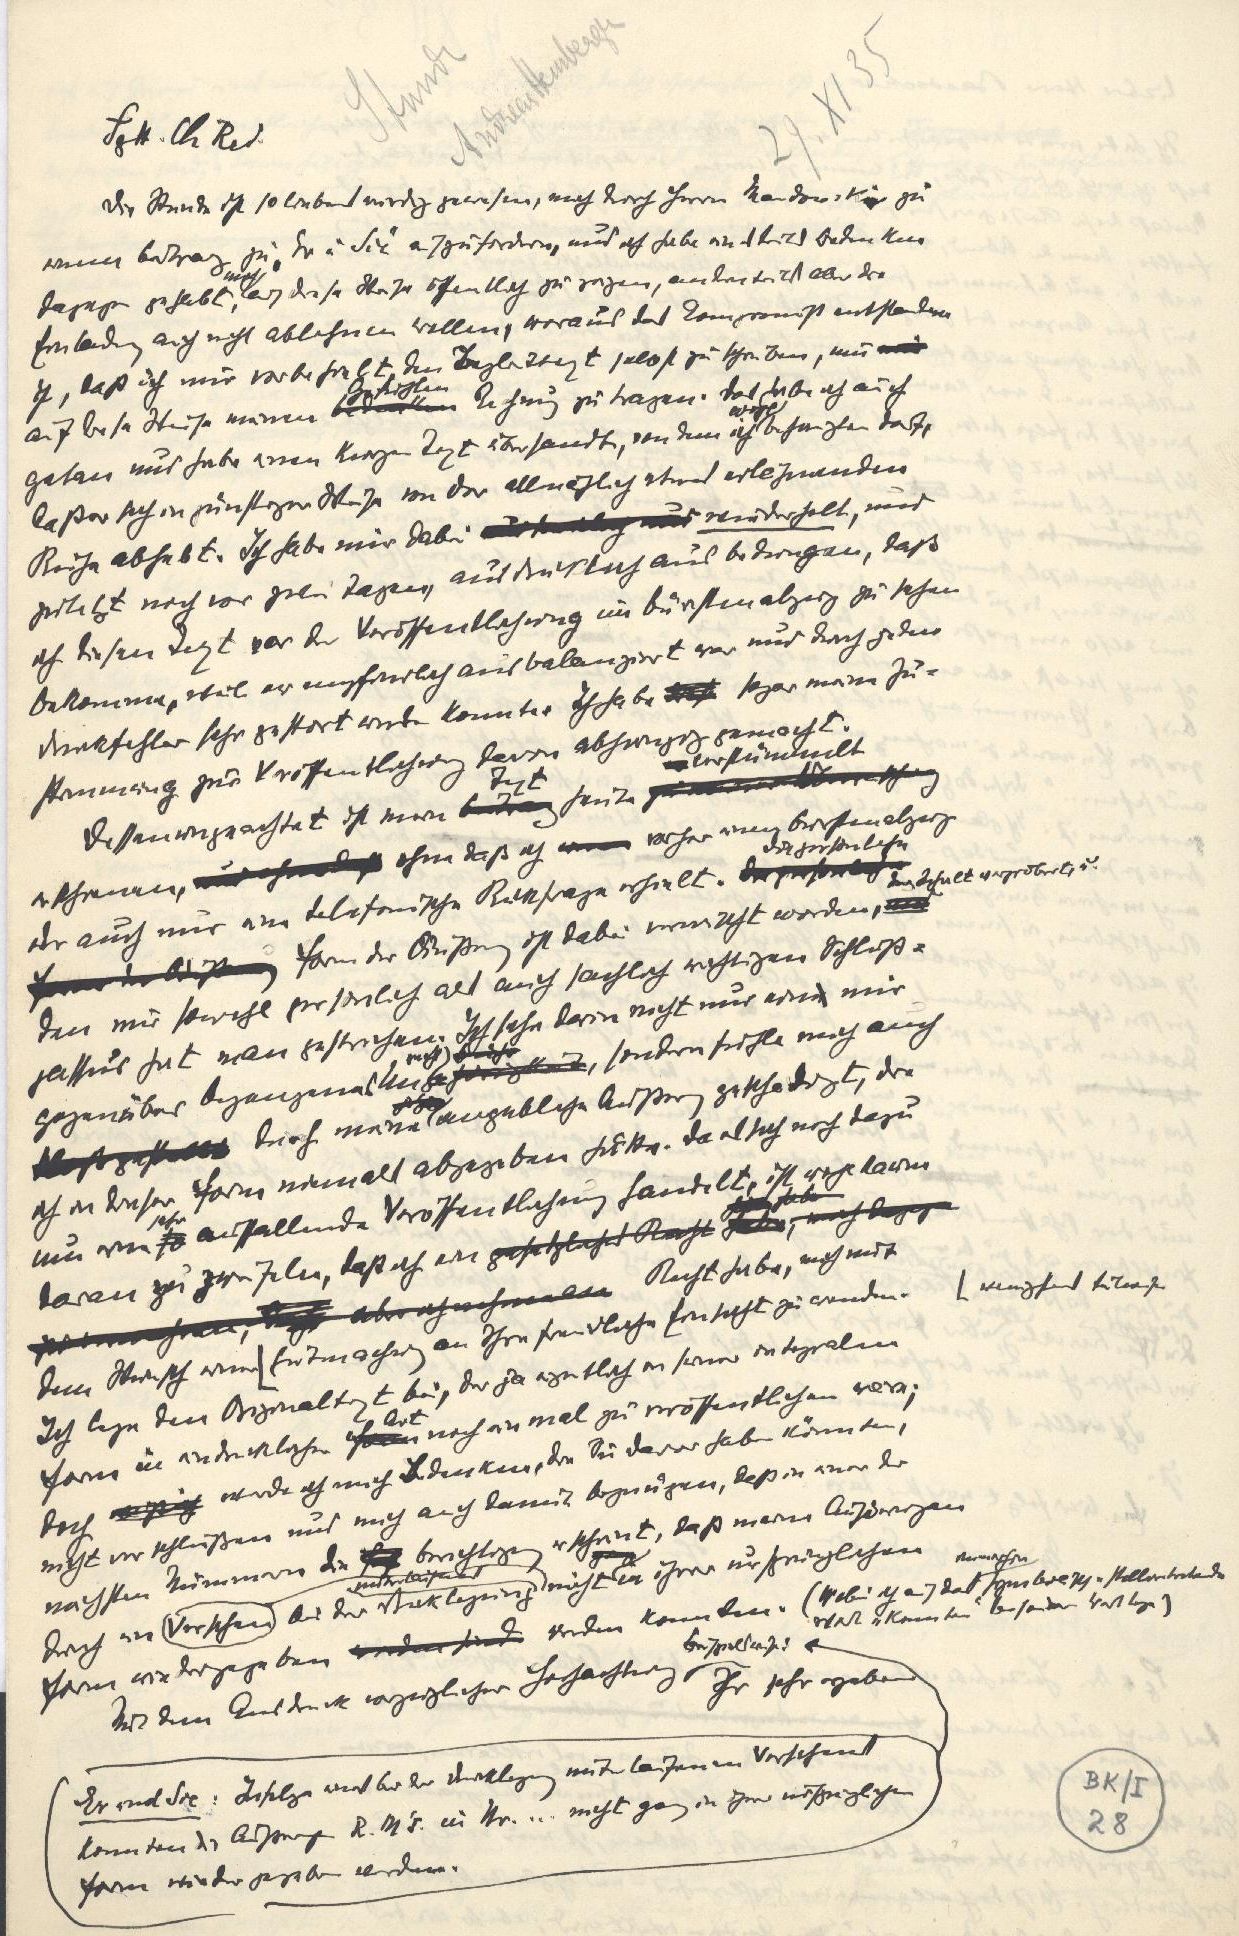 Stunde
29. XI 35
Sgtt. Ch Red.
Die Stunde ist so liebenswürdig gewesen, mich durch Herrn zu
einem Beitrag zu „Er u Sie" aufzufordern, und ich habe einesteils Bedenken
dagegen gehabt, mich auf diese Weise öffentlich zu zeigen, andernteils aber die
Einladung auch nicht ablehnen wollen, woraus das Kompromiß entstanden
ist, daß ich mir vorbehielt, den Begleittext selbst zu schreiben, um
auf diese Weise meinen Gefühlen Rechnung zu tragen. Das habe ich auch
getan und habe einen kurzen Text übersandt, von dem ich wohl behaupten darf,
daß er sich in günstiger Weise von der allmählich etwas
Reihe abhebt. Ich habe mir dabei wiederholt, und
zuletzt noch vor zwei Tagen, ausdrücklich ausbedungen, daß
ich diesen Text vor der Veröffentlichung im Bürstenabzug zu sehen
bekomme, weil er empfindlich ausbalanziert war und durch jeden
Druckfehler sehr gestört werden konnte. Ich habe sogar meine Zu-
stimmung zur Veröffentlichung davon abhängig gemacht.
Dessenungeachtet ist mein Text heute verstümmelt
erschienen, ohne daß ich vorher einen Bürstenabzug
oder auch nur eine telefonische Rückfrage erhielt. Die persönliche
Form der Äußerung ist dabei verwischt worden, der Inhalt vergröbert, u.
den mir sowohl persönlich als auch sachlich wichtigen Schluß-
passus hat man gestrichen. Ich sehe darin nicht nur eine mir
gegenüber begangene, sondern fühle mich auch
durch meine angebliche Äußerung geschädigt, die
ich in dieser Form niemals abgegeben hätte. Da es sich noch dazu
um eine sehr auffallende Veröffentlichung handelt, ist wohl kaum
daran zu zweifeln, daß ich ein Recht habe, mich mit
dem Wunsch einer Gutmachung an Ihre freundliche Einsicht zu wenden. | wenigstens teilweise
Ich lege den Originaltext bei, der ja eigentlich in seiner integralen
Form in eindrucklicher Art noch einmal zu veröffentlichen wäre;
doch werde ich mich Bedenken, die Sie davor haben könnten,
nicht verschließen und mich auch damit begnügen, daß in einer der
nächsten Nummern die Berichtigung erscheint, daß meine Äußerungen
durch ein Versehen bei der Drucklegung nicht in ihrer ursprünglichen
Form wiedergegeben werden konnten. (Wobei ich auf das
Wort „konnten" besonderen Wert lege)
Mit dem Ausdruck vorzüglicher Hochachtung Ihr sehr ergebener
beispielsweise:
Er und Sie: Infolge eines bei der Drucklegung unterlaufenen Versehens
konnten die Äußerungen R. M's. in Nr. ... nicht ganz in ihrer ursprünglichen
Form wiedergegeben werden.
BK/I
28